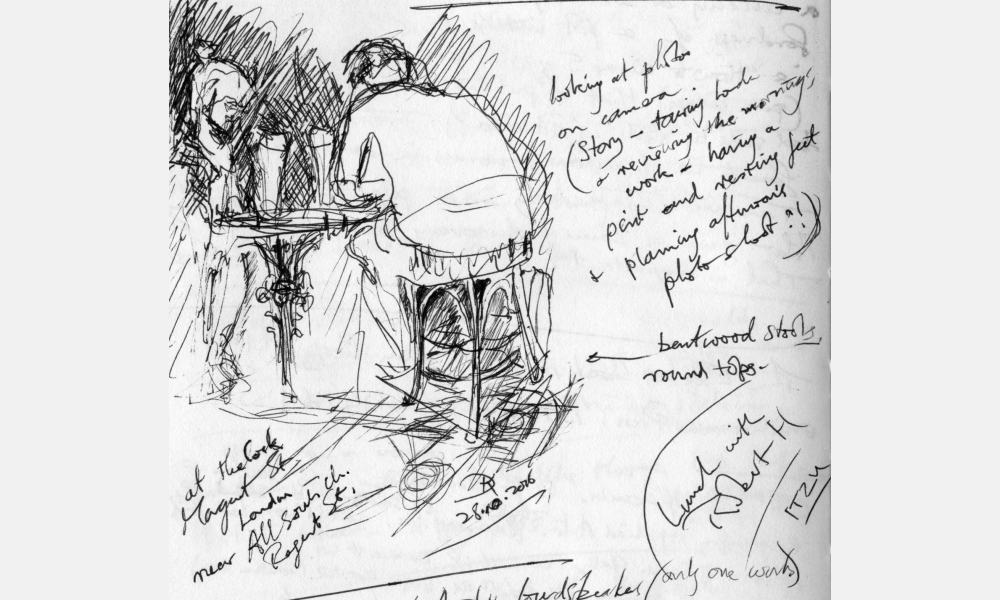 looking at photos
on camera.
(Story - touring London
& reviewing the mornings
work - having a
pint and resting feet
& planning afternoons
photo shoot ?!)
bentwood stools,
round tops-
Lunch with
H
at the Cock
Margaret St
London
near All Souls Ch.
Regent St.
28. 2016
loudspeakes
(only one works)